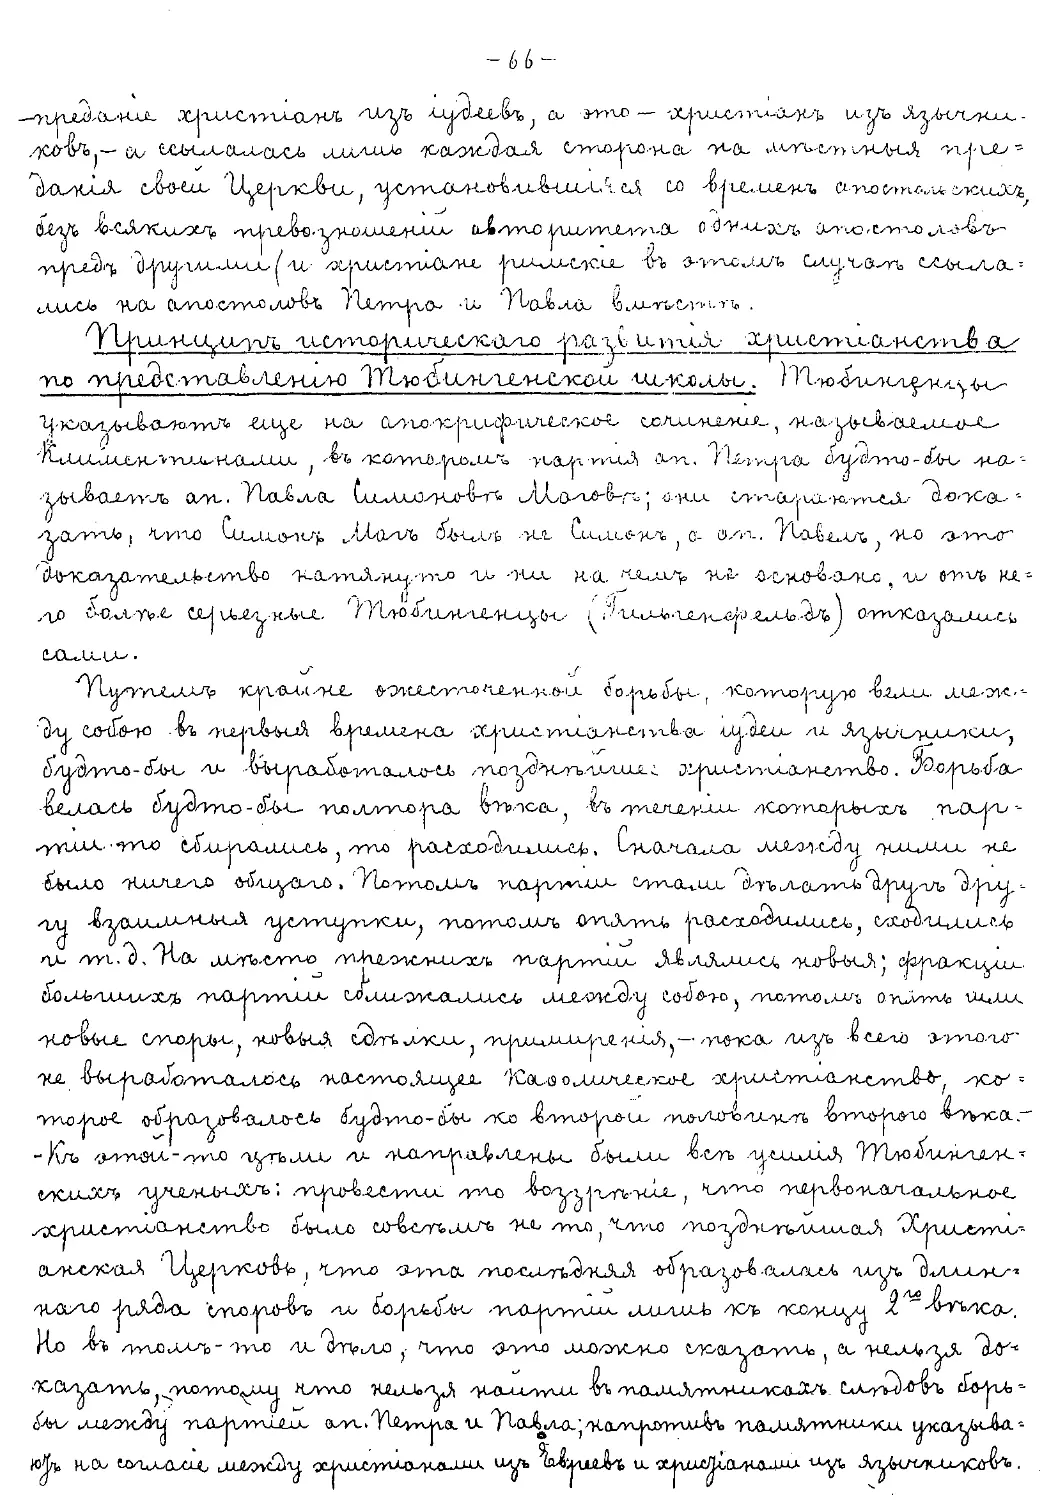 -66-
-преданіе христіанъ изъ іудеевъ, а это — христіанъ изъ язычни-
ковъ,- а ссылалась лишь каждая сторона на мѣстныя пре=
данія своей Церкви, установившіяся со временъ апостольскихъ,
безъ всякихъ превозношеній авторитета однихъ апостоловъ
предъ другими (и христіане римскіе въ этомъ случаѣ ссыла=
лись на апостоловъ Петра и Павла вмѣстѣ.
Принципъ историческаго развитія христіанства
по представленію Тюбингенской школы. Тюбингенцы
указываютъ еще на апокрифическое сочиненіе, называемое
Климентинами, въ которомъ партія ап. Петра будто-бы на=
зываетъ ап. Павла Симоновъ Маговъ; они стараются дока=
зать, что Симонъ Магъ былъ не Симонъ, а ап. Павелъ, но это
доказательство натянуто и ни на чемъ не основано, и отъ не=
го болѣе серьезные Тюбингенцы (Гильгенфельдъ) отказались
сами.
Путемъ крайне ожесточенной борьбы, которую вели меж-
ду собою въ первыя времена христіанства іудеи и язычники,
будто-бы и выработалось позднѣйшее христіанство. Борьба
велась будто-бы полтора вѣка, въ теченіи которыхъ пар-
тіи то сбирались, то расходились. Сначала между ними не
было ничего общаго. Потомъ партіи стали дѣлать другъ дру-
гу взаимныя уступки, потомъ опять расходились, сходились
и т.д. На мѣсто прежнихъ партій являлись новыя; фракціи
большихъ партій сближались между собою, потомъ опять шли
новые споры, новыя сдѣлки, примиренія,- пока изъ всего этого
не выработалось настоящее Каѳолическое христіанство, ко=
торое образовалось будто-бы ко второй половинѣ второго вѣка.-
-Къ этой-то цѣли и направлены были всѣ усилія Тюбинген=
скихъ ученыхъ: провести то воззрѣніе, что первоначальное
христіанство было совсѣмъ не то, что позднѣйшая Христі=
анская Церковь, что эта послѣдняя образовалась изъ длин=
наго ряда споровъ и борьбы партій лишь къ концу 2го вѣка.
Но въ томъ-то и дѣло, что это можно сказать, а нельзя до-
казать, потому что нельзя найти въ памятникахъ слѣдовъ борь=
бы между партіей ап. Петра и Павла; напротивъ памятники указыва=
ютъ на согласіе между христіанами изъ Евреевъ и христіанами изъ язычниковъ.